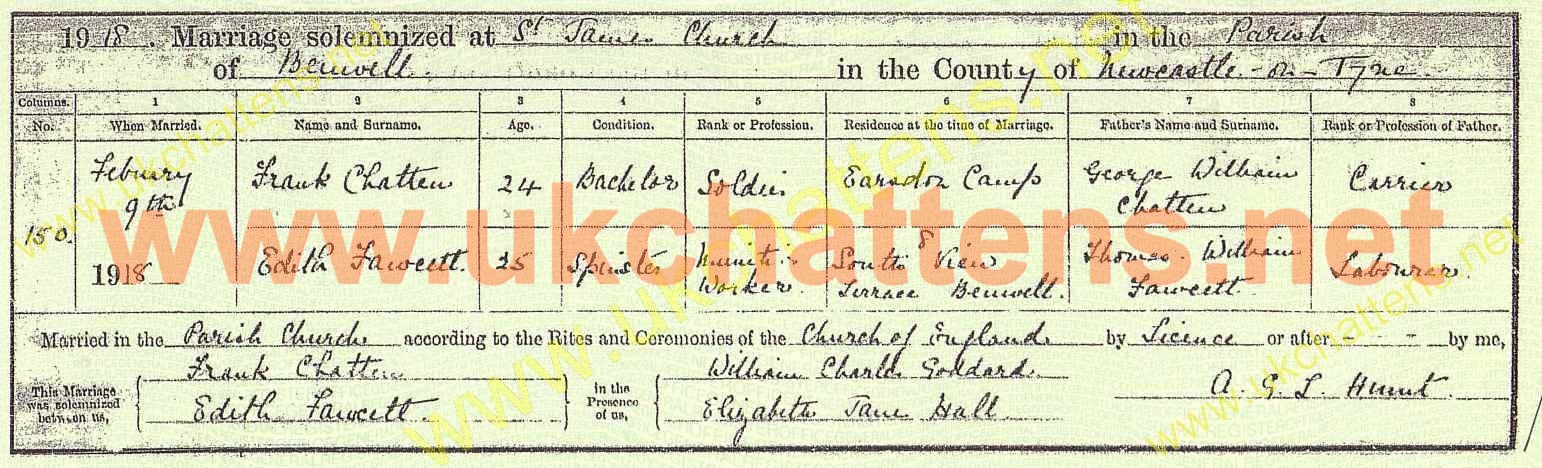 1918. Marriage solemnized at St James Church in the Parish
of Benwell. in the County of Newcastle-on-Tyne.
Columns. 1 2 3 4 5 6 7 8
No. When Married. Name and Surname. Age. Condition. Rank or Profession. Residence at the time of Marriage. Father's Name and Surname. Rank or Profession of Father.
150. Febuary 9th 1918
Frank Chatten 24 Bachelor Soldier Earsdon Camp George William Chatten Carrier
Edith Fawcett. 25 Spinster Munition Worker. 8 South View Terrace Benwell. Thomas William Fawcett Labourer.
Married in the Parish Church according to the Rites and Ceremonies of the Church of England by Licence or after - - - by me,
This Marriage was solemnized between us, Frank Chatten Edith Fawcett. in the Presence of us, William Charles Goddard. Elizabeth Jane Hall. A. G. L. Hunt
www.ukchattens.net
www.ukchattens.net
www.ukchattens.net
www.ukchattens.net
www.ukchattens.net